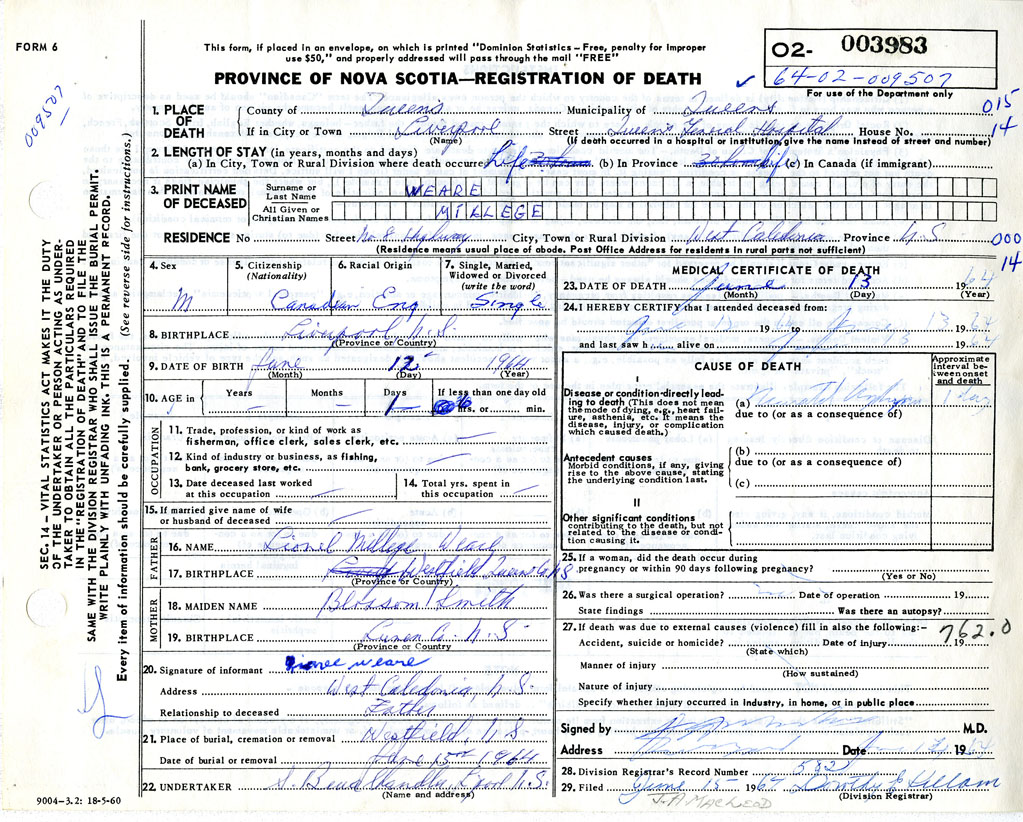 FORM 6
This form, if placed in an envelope, on which is printed "Dominion Statistics – Free, penalty for improper
use $50," and properly addressed will pass through the mail "FREE"
PROVINCE OF NOVA SCOTIA—REGISTRATION OF DEATH
02- 003983
64-02-009507
For use of the Department only
009507
015
14
000
14
SEC. 14 – VITAL STATISTICS ACT MAKES IT THE DUTY
OF THE UNDERTAKER OR PERSON ACTING AS UNDER-
TAKER TO OBTAIN ALL THE PARTICULARS REQUIRED
IN THE "REGISTRATION OF DEATH" AND TO FILE THE
SAME WITH THE DIVISION REGISTRAR WHO SHALL ISSUE THE BURIAL PERMIT.
WRITE PLAINLY WITH UNFADING INK. THIS IS A PERMANENT RECORD.
Every item of information should be carefully supplied. (See reverse side for instructions.)
1. PLACE OF DEATH County of Queens Municipality of Queens
If in City or Town Liverpool Street Queens General Hospital House No.
(Name) (If death occurred in a hospital or institution, give the name instead of street and number)
2. LENGTH OF STAY (in years, months and days)
(a) In City, Town or Rural Division where death occurred Life (b) In Province life (c) In Canada (if immigrant)
3. PRINT NAME OF DECEASED Surname or Last Name WEARE
All Given or Christian Names MILLEGE
RESIDENCE No Street No. 8 Highway City, Town or Rural Division West Caledonia Province N.S.
(Residence means usual place of abode. Post Office Address for residents in rural parts not sufficient)
4. Sex 5. Citizenship (Nationality) 6. Racial Origin 7. Single, Married, Widowed or Divorced (write the word)
M Canadian Eng Single
8. BIRTHPLACE Liverpool N.S.
(Province or Country)
9. DATE OF BIRTH June 12 1964
(Month) (Day) (Year)
10. AGE in Years Months Days If less than one day old
1 hrs. or min.
OCCUPATION
11. Trade, profession, or kind of work as
fisherman, office clerk, sales clerk, etc.
12. Kind of industry or business, as fishing,
bank, grocery store, etc.
13. Date deceased last worked
at this occupation
14. Total yrs. spent in
this occupation
15. If married give name of wife
or husband of deceased
FATHER
16. NAME Lionel Millege Weare
17. BIRTHPLACE Westfield Queens Co. N S
(Province or Country)
MOTHER
18. MAIDEN NAME Blossom Smith
19. BIRTHPLACE Lunen Co. N.S.
(Province or Country
20. Signature of informant weare
Address West Caledonia N S.
Relationship to deceased Father
21. Place of burial, cremation or removal Westfield, N S
Date of burial or removal June 15 1964
22. UNDERTAKER N.S.
(Name and address)
9004–3.2: 18-5-60
MEDICAL CERTIFICATE OF DEATH
23. DATE OF DEATH June 13 1964
(Month) (Day) (Year)
24. I HEREBY CERTIFY that I attended deceased from:
June 19 to June 13 1964
and last saw h alive on 13 1964
CAUSE OF DEATH
Approximate interval between onset and death
I
Disease or condition directly leading to death (This does not mean the mode of dying, e.g., heart failure, asthenia, etc. It means the disease, injury, or complication which caused death.)
(a) 1 day
due to (or as a consequence of)
Antecedent causes
Morbid conditions, if any, giving rise to the above cause, stating the underlying condition last.
(b)
due to (or as a consequence of)
(c)
II
Other significant conditions
contributing to the death, but not related to the disease or condition causing it.
25. If a woman, did the death occur during
pregnancy or within 90 days following pregnancy?
(Yes or No)
26. Was there a surgical operation? Date of operation 19
State findings Was there an autopsy?
27. If death was due to external causes (violence) fill in also the following:– 762.0
Accident, suicide or homicide? Date of injury 19
(State which)
Manner of injury
(How sustained)
Nature of injury
Specify whether injury occurred in industry, in home, or in public place
Signed by M.D.
Address Date 1964
28. Division Registrar's Record Number
29. Filed June 15 1964
(Division Registrar)
J.A MACLEOD